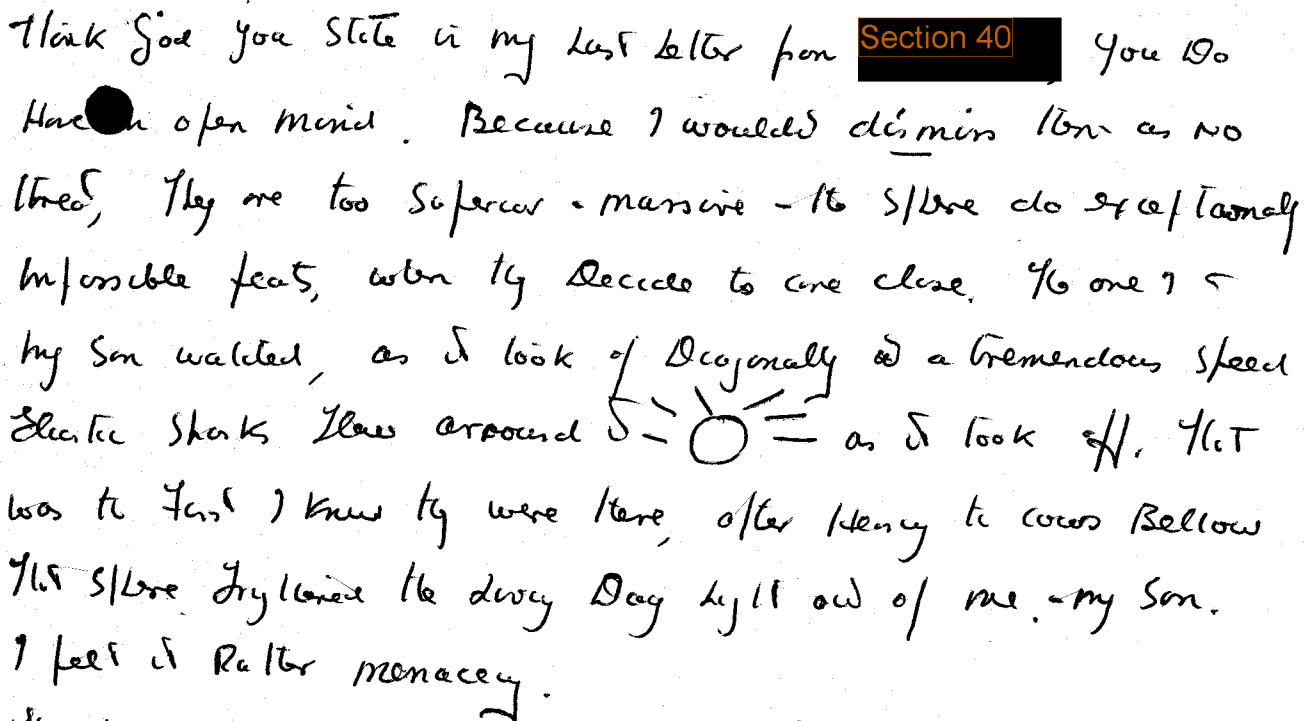 Thank God you State in my Last Letter from Section 40, you Do
Have open mind. Because I would dismiss them as no
threat, They are too Superior - massive - the Sphere do exceptionally
Impossible feats, when they Decide to come close. The one I &
my Son watched, as it took off Diagonally at a tremendous speed
Electric Sparks Flew arround it as it took off. That
was the First I knew they were there, after Hearing the cows Bellow
That Sphere Frightened the Living Day Light out of me & my Son.
I felt it Rather menacing.